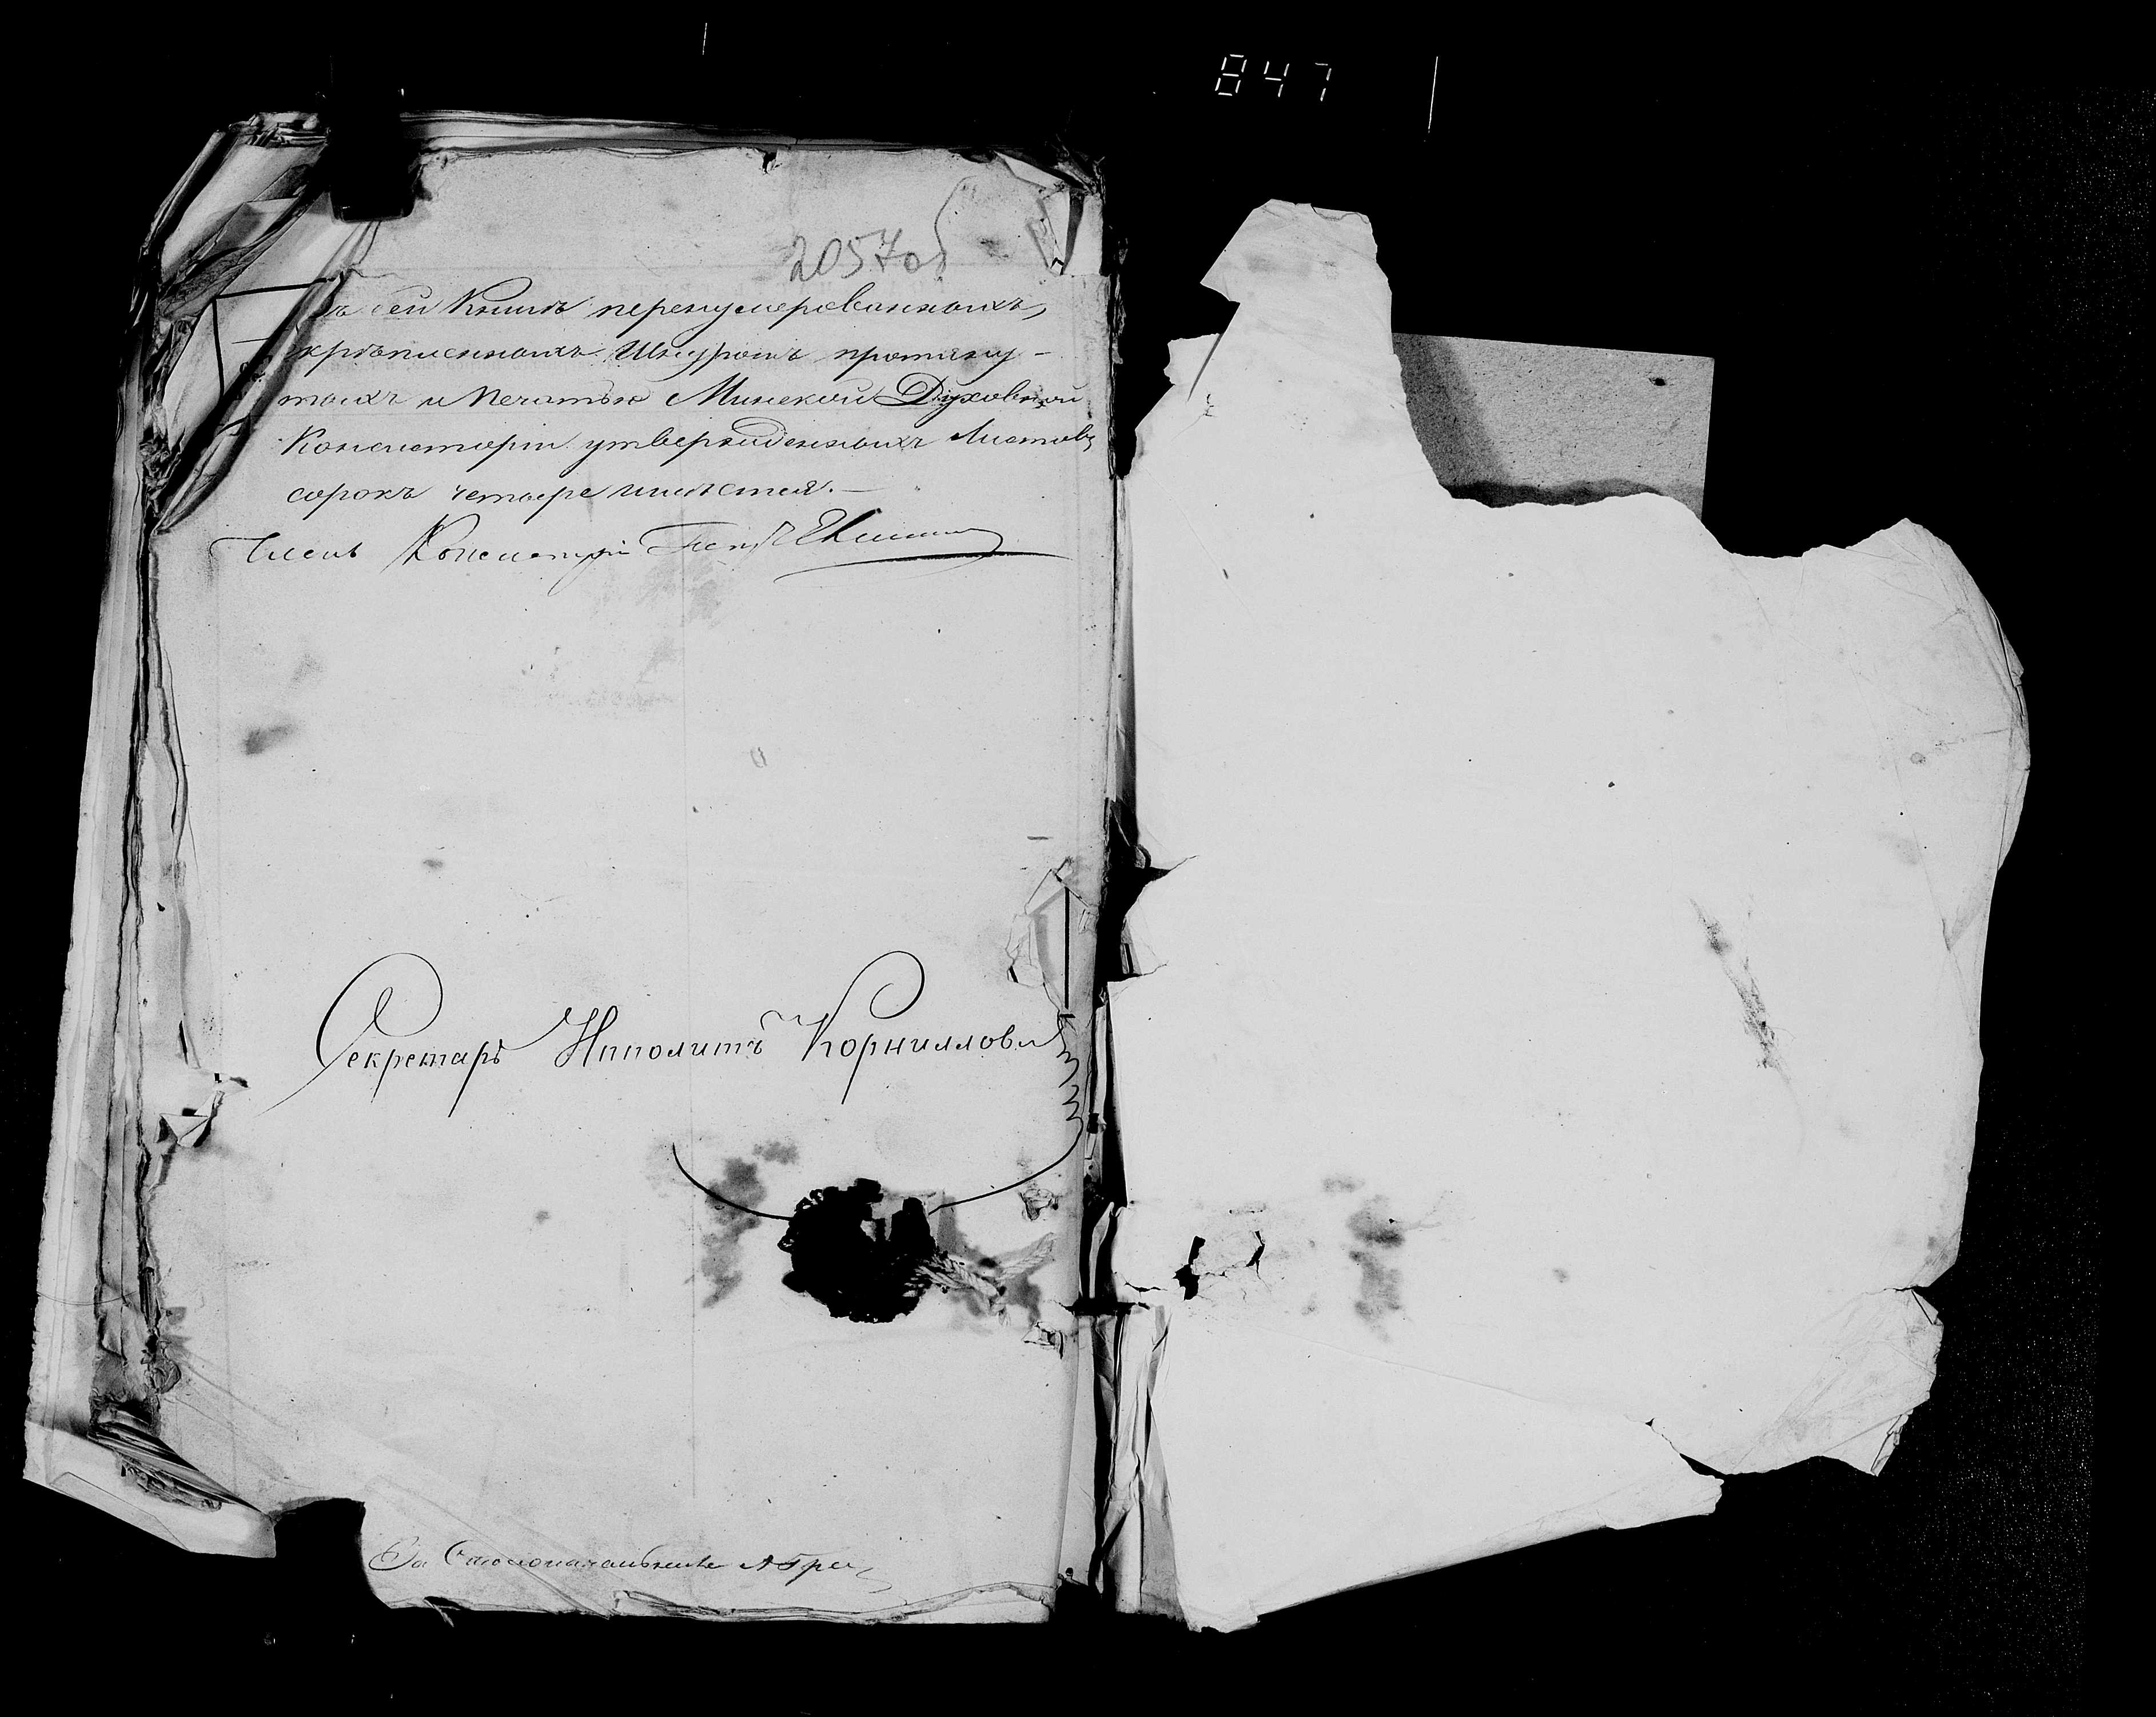 847
2057об
Въ сей Книгѣ перенумерованныхъ,
крѣпленныхъ Шнуромъ протяну-
тыхъ и печатью Минской Духовной
Консисторіи утвержденныхъ Листовъ
сорокъ четыре имѣется.—
Членъ Консисторіи
Секретарь Ипполитъ Корниловъ
За Столоначальника